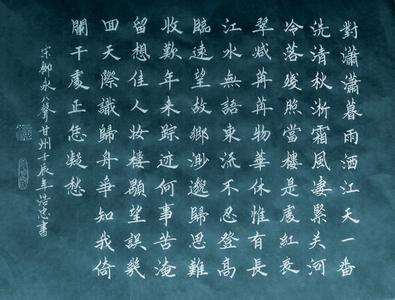 對瀟瀟暮雨洒江天一番
洗清秋漸霜風凄緊关河
冷落殘照當樓是處紅衰
翠減苒苒物華休惟有長
江水無語東流不忍登高
臨遠望故鄉渺邈歸思難
收歎年來踪迹何事苦淹
留想佳人妝樓顒望誤幾
回天際識歸舟爭知我倚
闌干處正恁凝愁
宋柳永八聲甘州壬辰年浩忠書